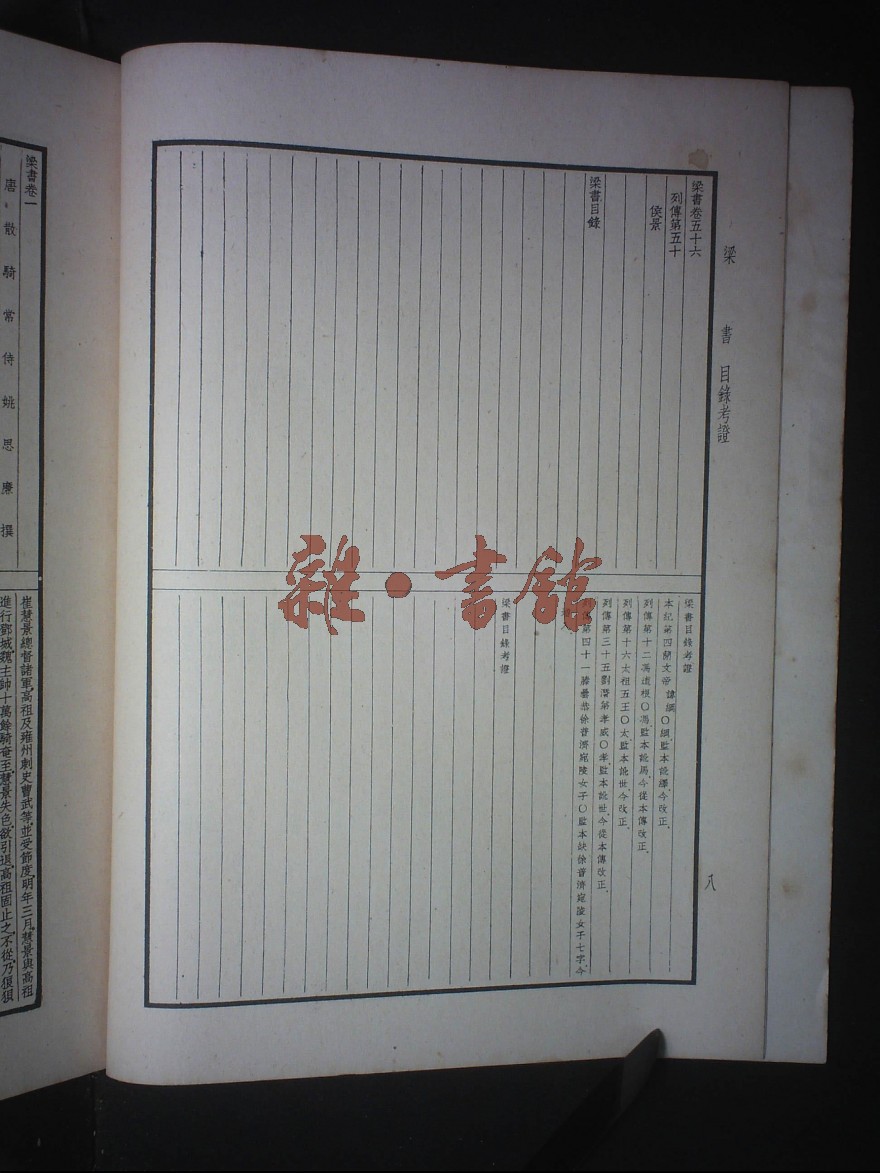 梁書 目錄考證
八
梁書卷五十六
列傳第五十
侯景
梁書目錄
梁書目錄考證
本紀第四簡文帝諱綱〇綱、監本訛繹、今改正、
列傳第十二馮道根〇馮、監本訛馬、今從本傳改正、
列傳第十六太祖五王〇太、監本訛世、今改正、
列傳第三十五劉潛第孝威〇孝、監本訛世、今從本傳改正、
列傳第四十一滕曇恭徐普濟宛陵女子〇監本缺徐普濟宛陵女子七字、今
梁書目錄考證
雜·書館
梁書卷一
唐散騎常侍姚思廉撰
崔慧景總督諸軍、高祖及雍州刺史曹武等、並受節度、明年三月、慧景與高祖
進行鄧城、魏主帥十萬餘騎奄至、慧景失色、欲引退、高祖固止之、不從、乃狼狽